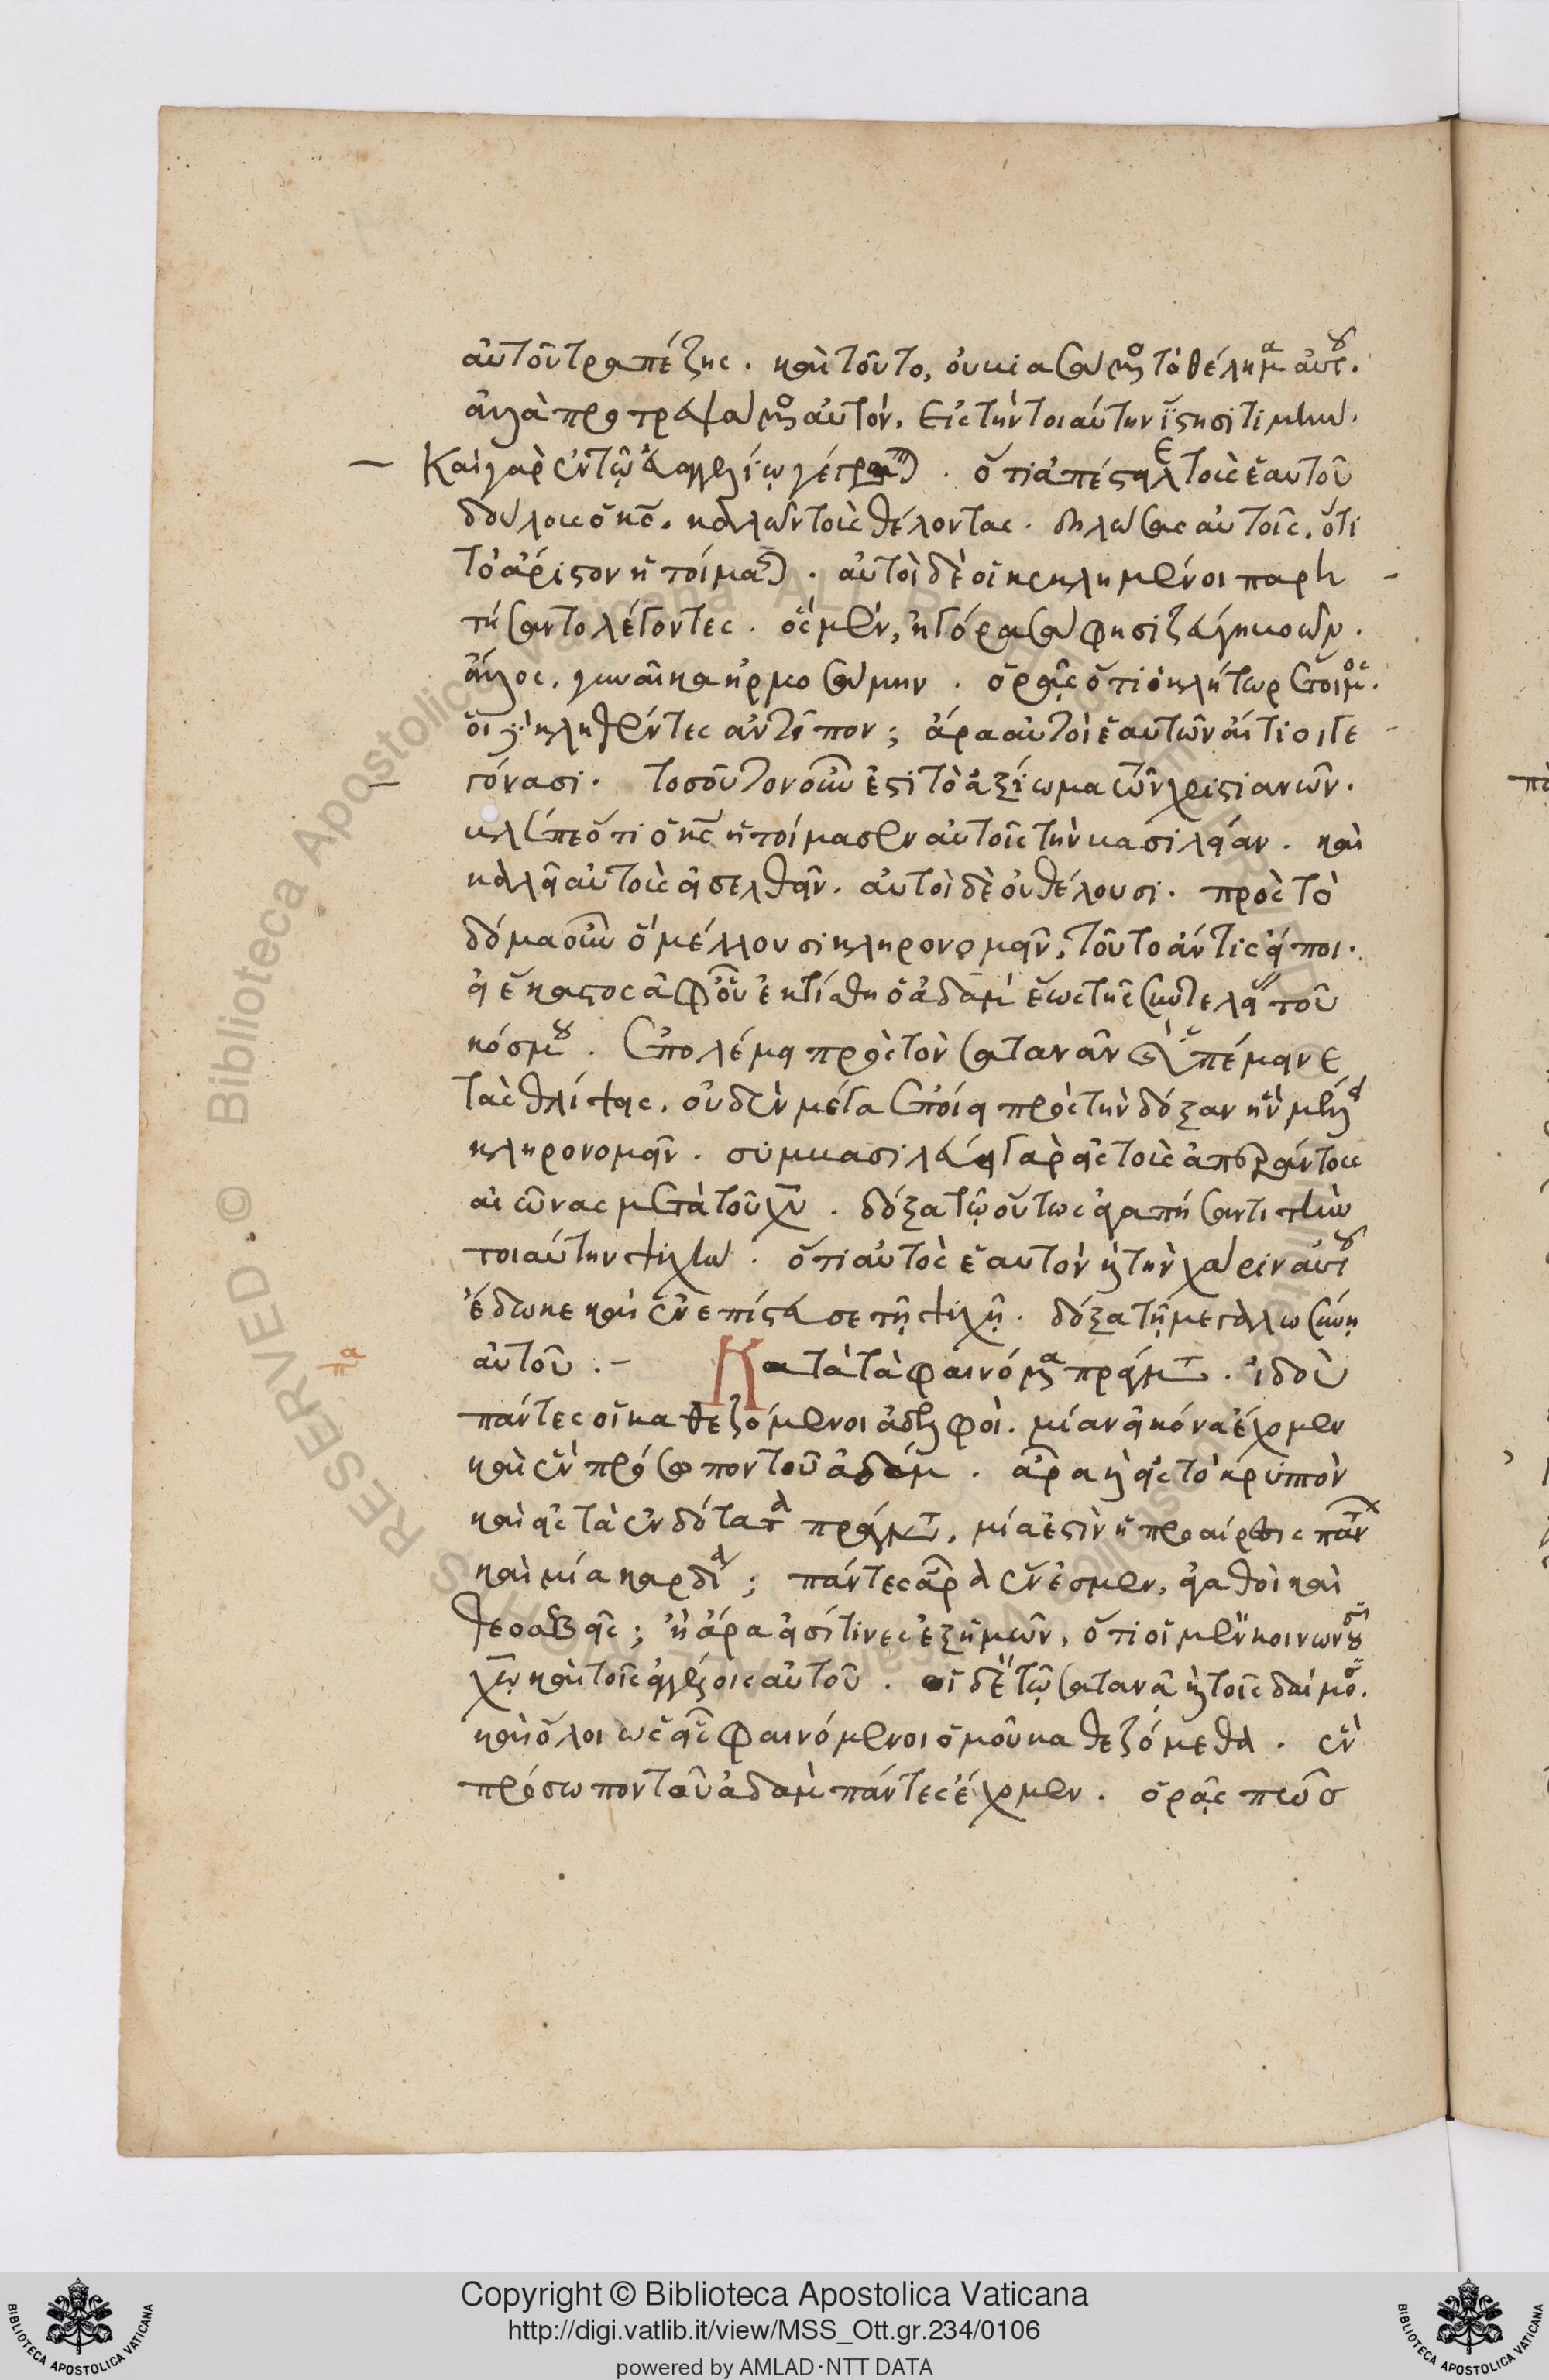 αὐτοῦ τραπέζης. καὶ τοῦτο, οὐ βιασάμενος τὸ θέλημα αὐτοῦ.
ἀλλὰ προτρεψάμενος αὐτόν. Εἰς τὴν τοιαύτην ἵστησι τιμήν.
Καὶ γὰρ ἐν τῷ εὐαγγελίῳ γέγραπται. ὅτι ἀπέστειλε τοὺς ἑαυτοῦ
δούλους ὁ κς. καλῶν τοὺς θέλοντας. δηλώσας αὐτοῖς, ὅτι
τὸ ἄριστον ἡτοίμασται. αὐτοὶ δὲ οἱ κεκλημένοι παρῃ
τήσαντο λέγοντες. ὃς μὲν, ἠγόρασα φησὶ ζεύγη βοῶν.
ἄλλος, γυναῖκα ἡρμοσάμην. ὁρᾷς ὅτι ὁ κλήτωρ ἕτοιμος.
οἱ δὲ κληθέντες ἀντεῖπον; ἄρα αὐτοὶ ἑαυτῶν αἴτιοι γε
γόνασι. τοσοῦτον οὖν ἐστὶ τὸ ἀξίωμα τῶν χριστιανῶν.
βλέπε ὅτι ὁ κς ἡτοίμασεν αὐτοῖς τὴν βασιλείαν. καὶ
καλεῖ αὐτοὺς εἰσελθεῖν. αὐτοὶ δὲ οὐ θέλουσι. πρὸς τὸ
δόμα οὖν ὃ μέλλουσι κληρονομεῖν, τοῦτο ἄν τις εἴποι.
εἰ ἕκαστος ἀφ' οὗ ἐκτίσθη ὁ ἀδὰμ ἕως τῆς συντελείας τοῦ
κόσμου. ἐπολέμει πρὸς τὸν σατανᾶν καὶ ὑπέμεινε
τὰς θλίψεις. οὐδὲν μέγα ἐποίει πρὸς τὴν δόξαν ἣν μέλλει
κληρονομεῖν. συμβασιλεύει γὰρ εἰς τοὺς ἀπεράντους
αἰῶνας μετὰ τοῦ χυ. δόξα τῷ οὕτως ἀγαπήσαντι τὴν
τοιαύτην ψυχήν. ὅτι αὐτὸς ἑαυτὸν καὶ τὴν χάριν αὐτοῦ
ἔδωκε καὶ ἐνεπίστευσε τῇ ψυχῇ. δόξα τῇ μεγαλωσύνῃ
αὐτοῦ. Κατὰ τὰ φαινόμενα πράγματα. ἰδοὺ
πάντες οἱ καθεζόμενοι ἀδελφοί. μίαν εἰκόνα ἔχομεν
καὶ ἓν πρόσωπον τοῦ ἀδάμ. ἆρα καὶ εἰς τὸ κρυπτὸν
καὶ εἰς τὰ ἐνδότατα πράγματα, μία ἐστὶν ἡ προαίρεσις πάντων
καὶ μία καρδία; πάντες ἆρα ἕν ἐσμεν, ἀγαθοὶ καὶ
θεοσεβεῖς; ἢ ἄρα εἰσί τινες ἐξ ἡμῶν, ὅτι οἱ μὲν κοινωνοῦσι
χῷ καὶ τοῖς ἀγγέλοις αὐτοῦ. οἱ δὲ τῷ σατανᾷ καὶ τοῖς δαίμοσι.
καὶ ὅλοι ὡς εἷς φαινόμενοι ὁμοῦ καθεζόμεθα. ἓν
πρόσωπον τοῦ ἀδὰμ πάντες ἔχομεν. ὁρᾷς πῶς
πα
Copyright © Biblioteca Apostolica Vaticana
http://digi.vatlib.it/view/MSS_Ott.gr.234/0106
powered by AMLAD·NTT DATA
BIBLIOTECA APOSTOLICA VATICANA
BIBLIOTECA APOSTOLICA VATICANA